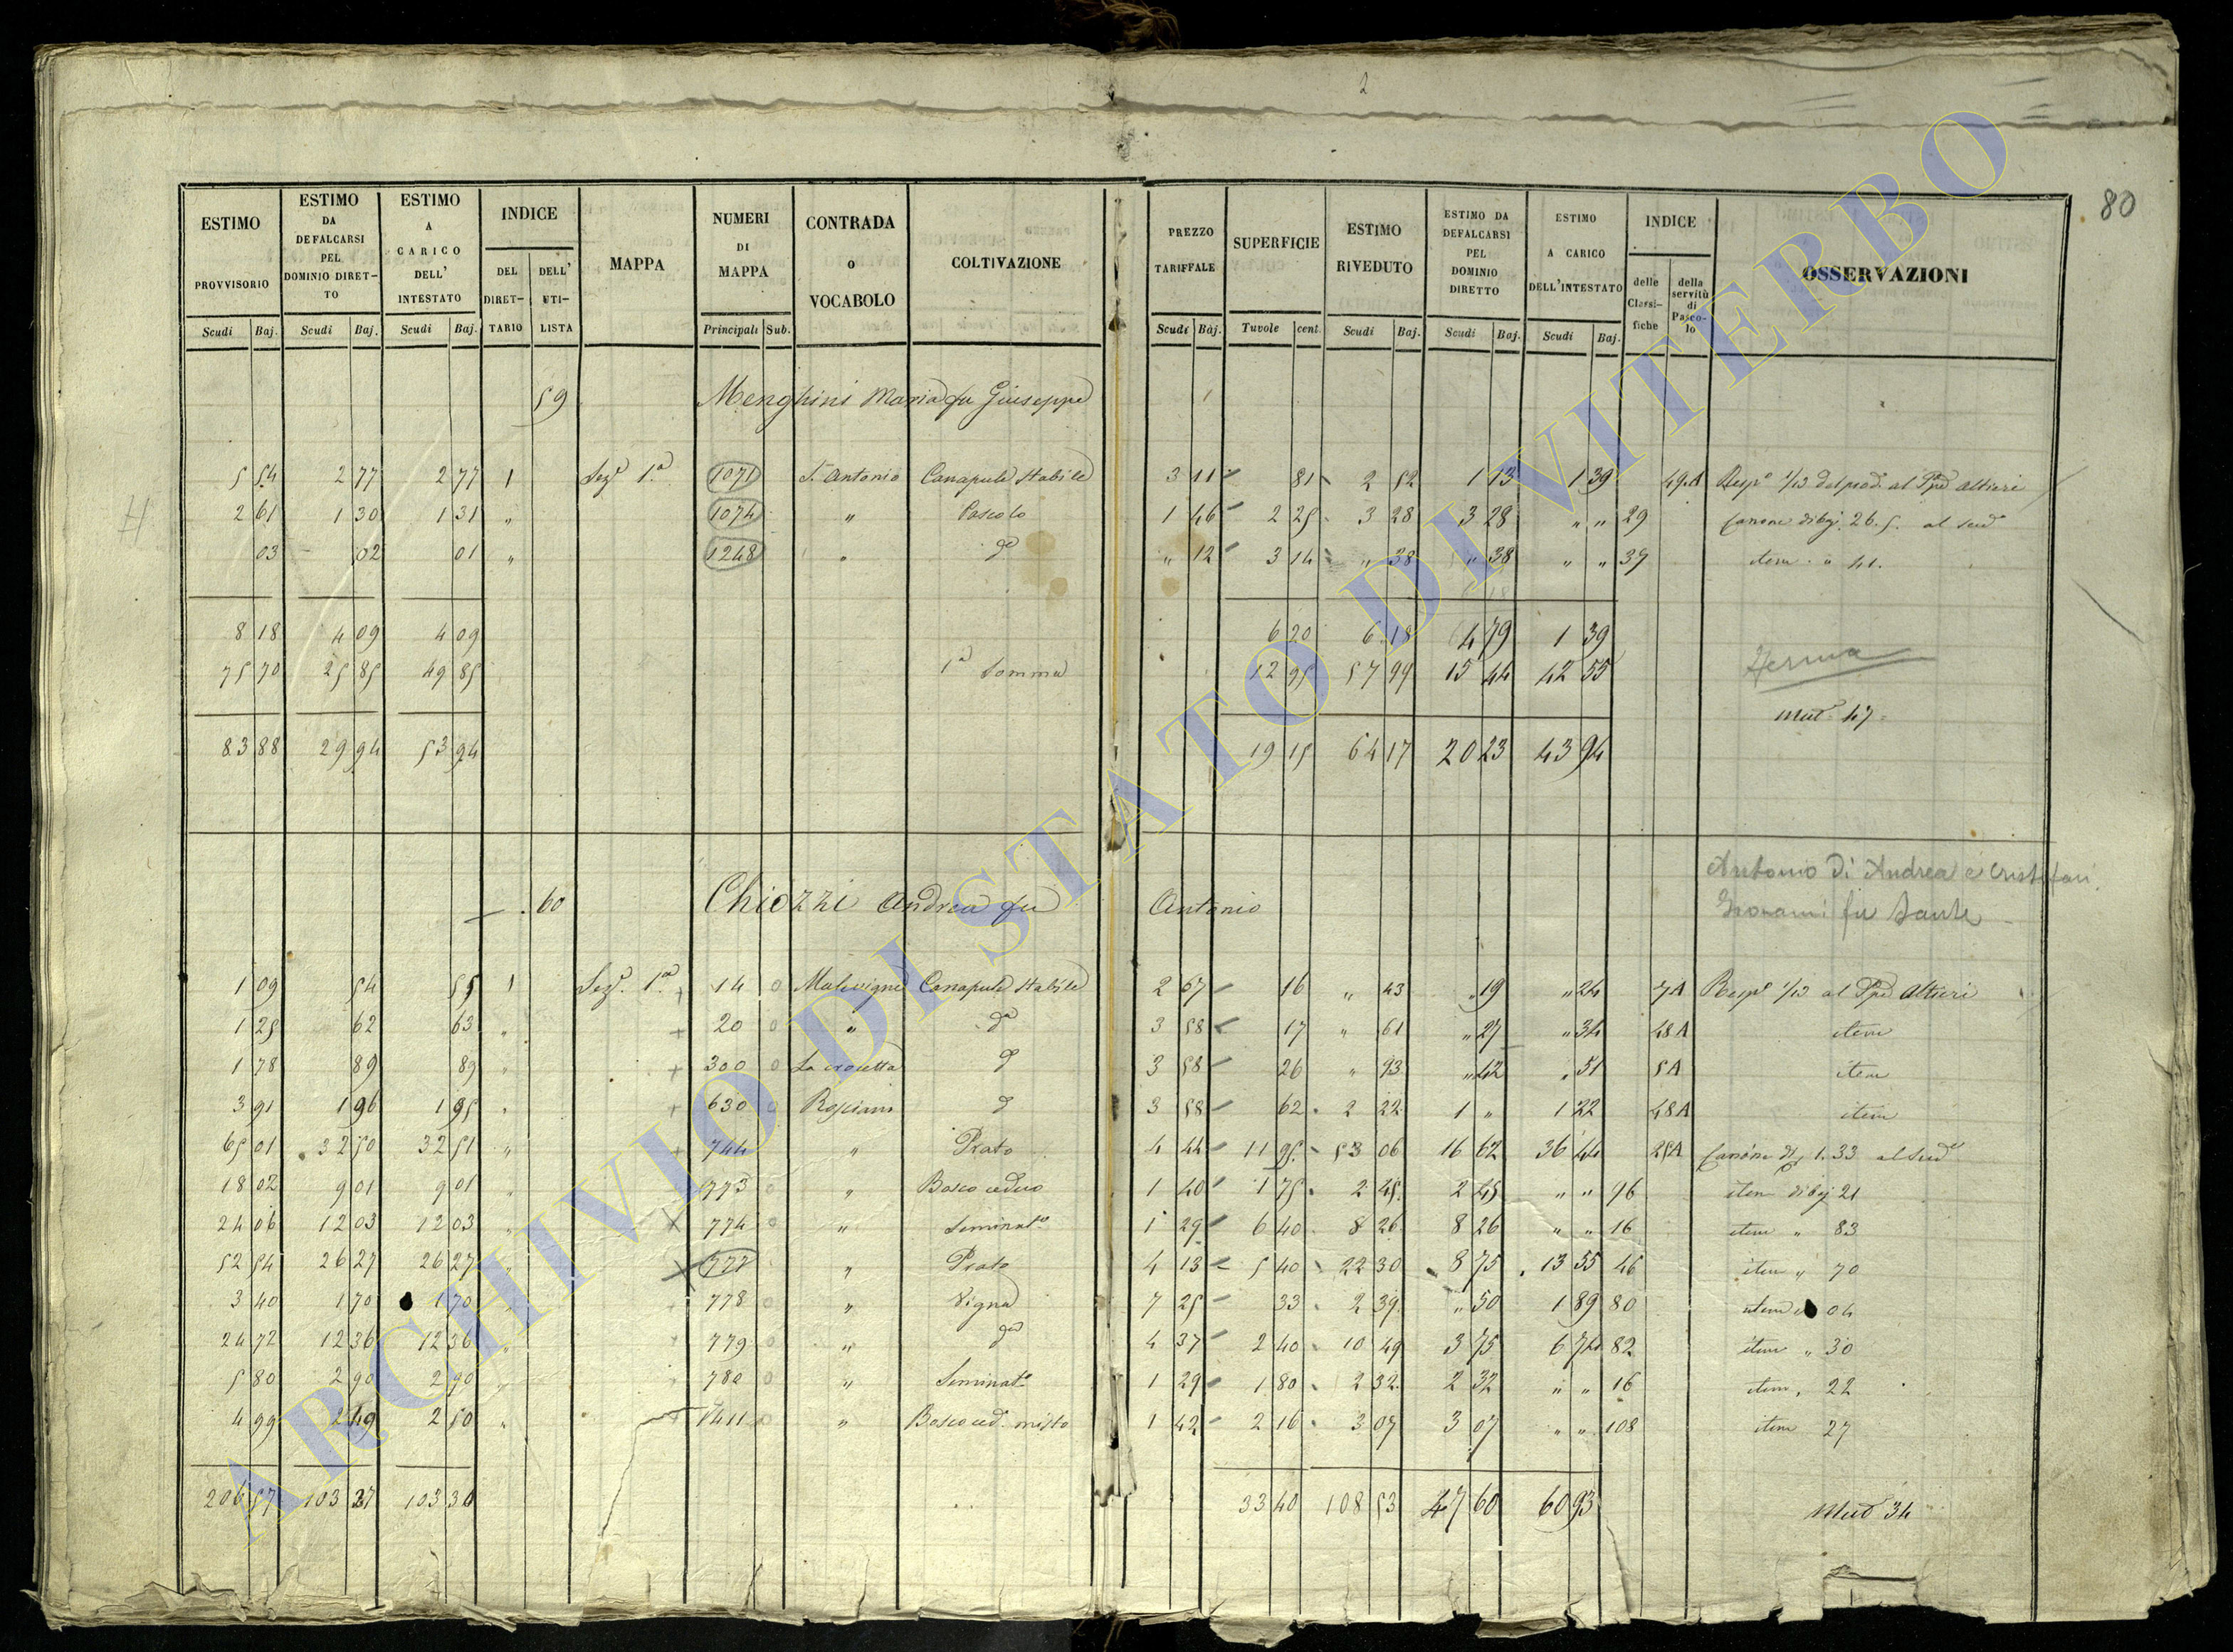 2
80
ESTIMO PROVVISORIO | ESTIMO DA DEFALCARSI PEL DOMINIO DIRETTO | ESTIMO A CARICO DELL' INTESTATO | INDICE DEL DIRETTARIO | DELL' UTILISTA | MAPPA | NUMERI DI MAPPA | CONTRADA o VOCABOLO | COLTIVAZIONE | PREZZO TARIFFALE | SUPERFICIE | ESTIMO RIVEDUTO | ESTIMO DA DEFALCARSI PEL DOMINIO DIRETTO | ESTIMO A CARICO DELL'INTESTATO | INDICE delle Classifiche | della servitù di Pascolo | OSSERVAZIONI
Scudi Baj. | Scudi Baj. | Scudi Baj. | Principali Sub. | Scudi Baj. | Tavole cent. | Scudi Baj. | Scudi Baj. | Scudi Baj.
59 Menghini Maria fu Giuseppe
5 54 | 2 77 | 2 77 | 1 | Seze 1a | 1071 | S. Antonio | Canapule Stabile | 3 11 | 81 | 2 52 | 1 13 | 1 39 | 49.A | Respe 1/13 del prod. al Ppe Altieri
2 61 | 1 30 | 1 31 | " | 1074 | " | Pascolo | 1 46 | 2 25 | 3 28 | 3 28 | " " | 29 | Canone di baj. 26.5. al sud
03 | 02 | 01 | " | 1248 | " | do | " 12 | 3 14 | " 38 | " 38 | " " | 37 | item " 41.
8 18 | 4 09 | 4 09 | 6 20 | 6 18 | 4 79 | 1 39
75 70 | 25 85 | 49 85 | 1a Somma | 12 95 | 57 99 | 15 44 | 42 55
Mud. 47
83 88 | 29 94 | 53 94 | 19 15 | 64 17 | 20 23 | 43 94
Antonio Di Andrea e Cristofari
60 Chiozzi Andrea fu Antonio
Giovanni fu Sante
1 09 | 54 | 55 | 1 | Seze 1a | 14 | 0 | Malevigne | Canapule Stabile | 2 67 | 16 | " 43 | " 19 | " 24 | 7A | Respe 1/13 al Ppe Altieri
1 25 | 62 | 63 | " | 20 | 0 | " | do | 3 58 | 17 | " 61 | " 27 | " 34 | 48A | item
1 78 | 89 | 89 | " | 300 | 0 | La crocetta | do | 3 58 | 26 | " 93 | " 42 | " 51 | 5A | item
3 91 | 1 96 | 1 95 | " | 630 | 0 | 3 58 | 62 | 2 22 | 1 " | 1 22 | 48A | item
65 01 | 32 50 | 32 51 | " | 744 | " | Prato | 4 44 | 11 95 | 53 06 | 16 62 | 36 44 | 25A | Canone di 1.33 al sud
18 02 | 9 01 | 9 01 | " | 773 | 0 | " | Bosco ceduo | 1 40 | 1 75 | 2 45 | 2 45 | " " | 96 | item di baj. 21
24 06 | 12 03 | 12 03 | " | 774 | 0 | " | Seminato | 1 29 | 6 40 | 8 26 | 8 26 | " " | 16 | item " 83
52 54 | 26 27 | 26 27 | " | 777 | " | Prato | 4 13 | 5 40 | 22 30 | 8 75 | 13 55 | 46 | item " 70
3 40 | 1 70 | 1 70 | " | 778 | 0 | " | Vigna | 7 25 | 33 | 2 39 | " 50 | 1 89 | 80 | item 04
24 72 | 12 36 | 12 36 | " | 779 | 0 | " | do | 4 37 | 2 40 | 10 49 | 3 75 | 6 74 | 82 | item " 30
5 80 | 2 90 | 2 90 | " | 780 | 0 | " | Seminato | 1 29 | 1 80 | 2 32 | 2 32 | " " | 16 | item " 22
4 99 | 2 49 | 2 50 | " | 1411 | " | Bosco ced. misto | 1 42 | 2 16 | 3 07 | 3 07 | " " | 108 | item 27
206 57 | 103 27 | 103 30 | 33 40 | 108 53 | 47 60 | 60 93 | Mud 34
ARCHIVIO DI STATO DI VITERBO